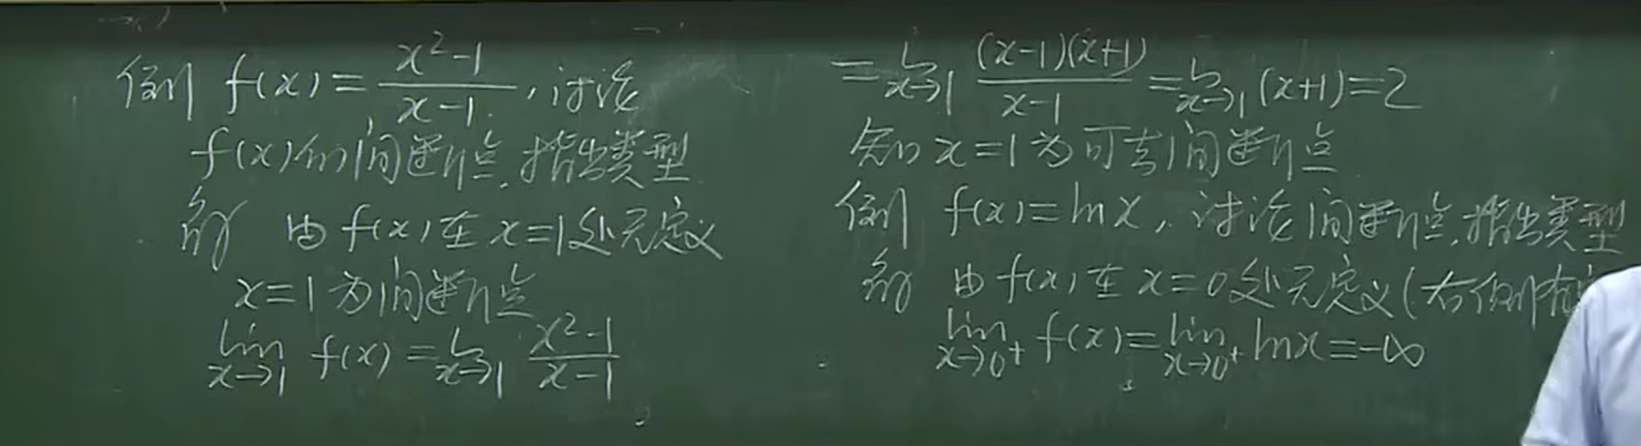 例 f(x)=\frac{x²-1}{x-1},讨论
f(x)的间断点,指出类型
解 由f(x)在x=1处无定义
x=1为间断点
\lim_{x→1} f(x)=\lim_{x→1} \frac{x²-1}{x-1}
=\lim_{x→1} \frac{(x-1)(x+1)}{x-1}=\lim_{x→1}(x+1)=2
知x=1为可去间断点
例 f(x)=lnx,讨论间断点,指出类型
解 由f(x)在x=0处无定义(右侧有
\lim_{x→0⁺} f(x)=\lim_{x→0⁺} lnx=-∞